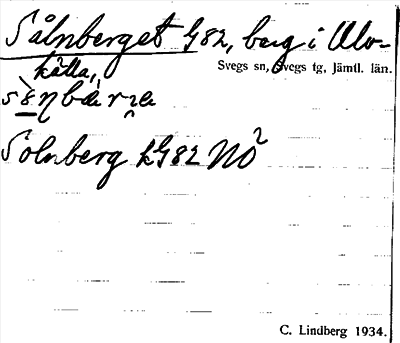 Sålnberget G82, berg i Ulv-
källa,
Svegs sn, Svegs tg, Jämtl. län.
Solnberg LG82 NÖ
C. Lindberg 1934.